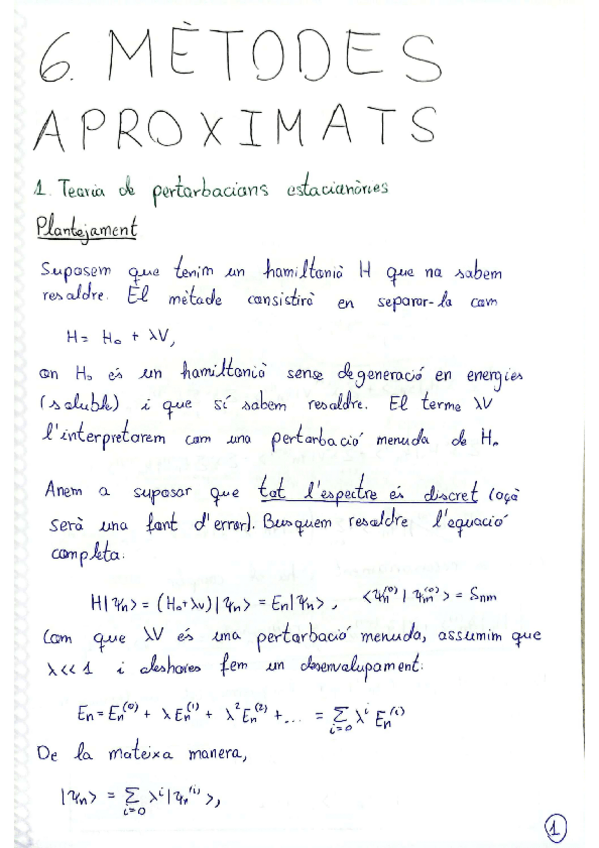 6. MÈTODES
APROXIMATS
1. Teoria de pertorbacions estacionàries
Plantejament
Suposem que tenim un hamiltonià H que no sabem
resoldre. El mètode consistirà en separar-lo com
H = H₀ + λV,
on H₀ és un hamiltonià sense degeneració en energies
(soluble) i que sí sabem resoldre. El terme λV
l'interpretarem com una pertorbació menuda de H₀
Anem a suposar que tot l'espectre és discret (açò
serà una font d'error). Busquem resoldre l'equació
completa:
H|ψn> = (H₀+λV)|ψn> = En|ψn>, <ψn⁽⁰⁾|ψm⁽⁰⁾> = δnm
Com que λV és una pertorbació menuda, assumim que
λ<<1 i aleshores fem un desenvolupament:
En = En⁽⁰⁾ + λEn⁽¹⁾ + λ²En⁽²⁾ + ... = Σ i=0 λⁱ En⁽ⁱ⁾
De la mateixa manera,
|ψn> = Σ i=0 λⁱ|ψn⁽ⁱ⁾>,
1